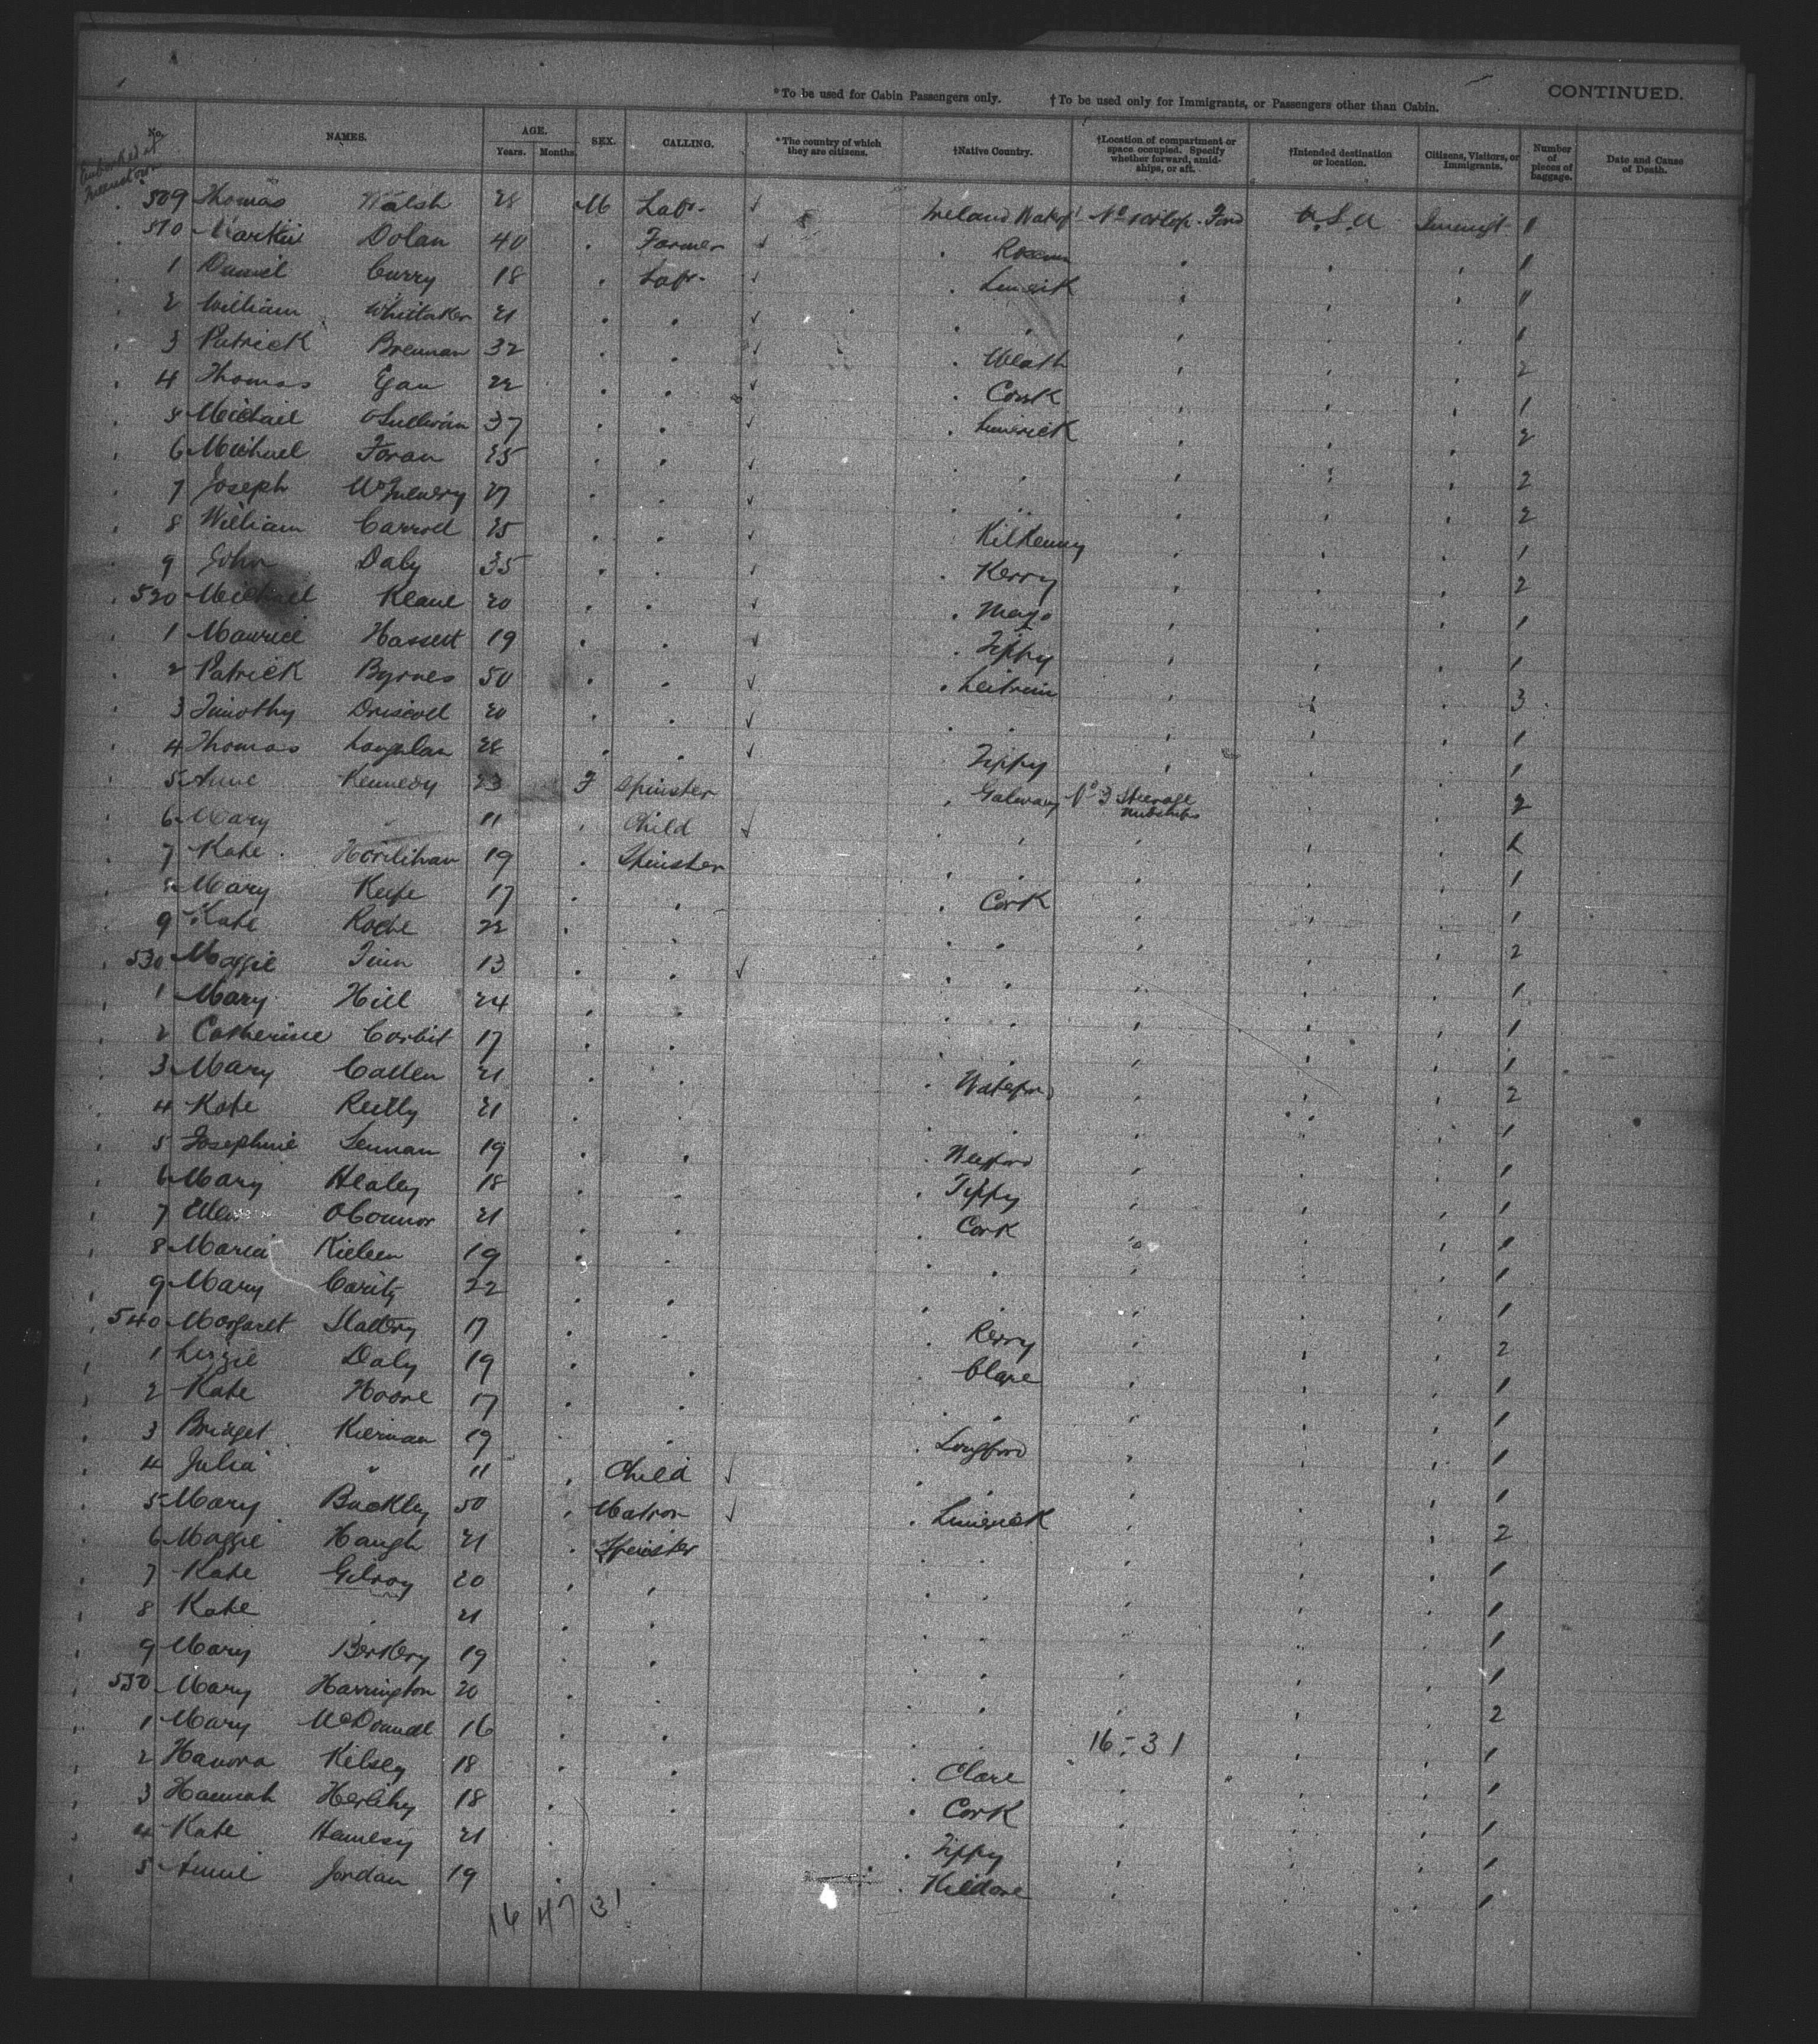 CONTINUED.
*To be used for Cabin Passengers only. †To be used only for Immigrants, or Passengers other than Cabin.
No. NAMES. AGE. Years. Months. SEX. CALLING. *The country of which they are citizens. †Native Country. †Location of compartment or space occupied. Specify whether forward, amidships, or aft. †Intended destination or location. Citizens, Visitors, or Immigrants. Number of pieces of baggage. Date and Cause of Death.
Embarked at Queenstown
509 Thomas Walsh 28 M Labr. Ireland U.S.A 1
510 Martin Dolan 40 Farmer 1
1 Daniel Curry 18 Labr. 1
2 William Whittaker 21 1
3 Patrick Brennan 32 Meath 2
4 Thomas Egan 22 Cork 1
5 Michael OSullivan 37 Limerick 2
6 Michael Foran 25 2
7 Joseph 27 2
8 William Carroll 25 Kilkenny 1
9 John Daly 35 Kerry 2
520 Michael Keane 20 Mayo 1
1 Maurice Hassett 19 Tippy 1
2 Patrick Byrnes 50 Leitrim 3
3 Timothy Driscoll 20 1
4 Thomas 28 Tippy 1
5 Anne Kennedy 23 F Spinster Galway No 3 Steerage Midships 2
6 Mary " 11 Child
7 Kate 19 Spinster 1
8 Mary Keefe 17 Cork 1
9 Kate Roche 22 2
530 Maggie Finn 13 1
1 Mary Hill 24 1
2 Catherine Corbit 17 1
3 Mary Callen 21 2
4 Kate Reilly 21 1
5 Josephine Lennan 19 1
6 Mary Healey 18 Tippy 1
7 Ellen OConnor 21 Cork 1
8 Maria Kieleen 19 1
9 Mary 22 1
540 Margaret Slattery 17 Kerry 2
1 Lizzie Daly 19 Clare 1
2 Kate 17 1
3 Bridget Kiernan 19 Longford 1
4 Julia " 11 Child 1
5 Mary Buckley 50 Matron Limerick 2
6 Maggie Haugh 21 Spinster 1
7 Kate Gilroy 20 1
8 Kate 21 1
9 Mary Berkery 19 1
550 Mary Harrington 20 2
1 Mary McDonnell 16 16-31 1
2 Hanora Kelsey 18 Clare 1
3 Hannah Herlihy 18 Cork 1
4 Kate 21 Tippy 1
5 Annie Jordan 19 Kildare 1
16 47 31